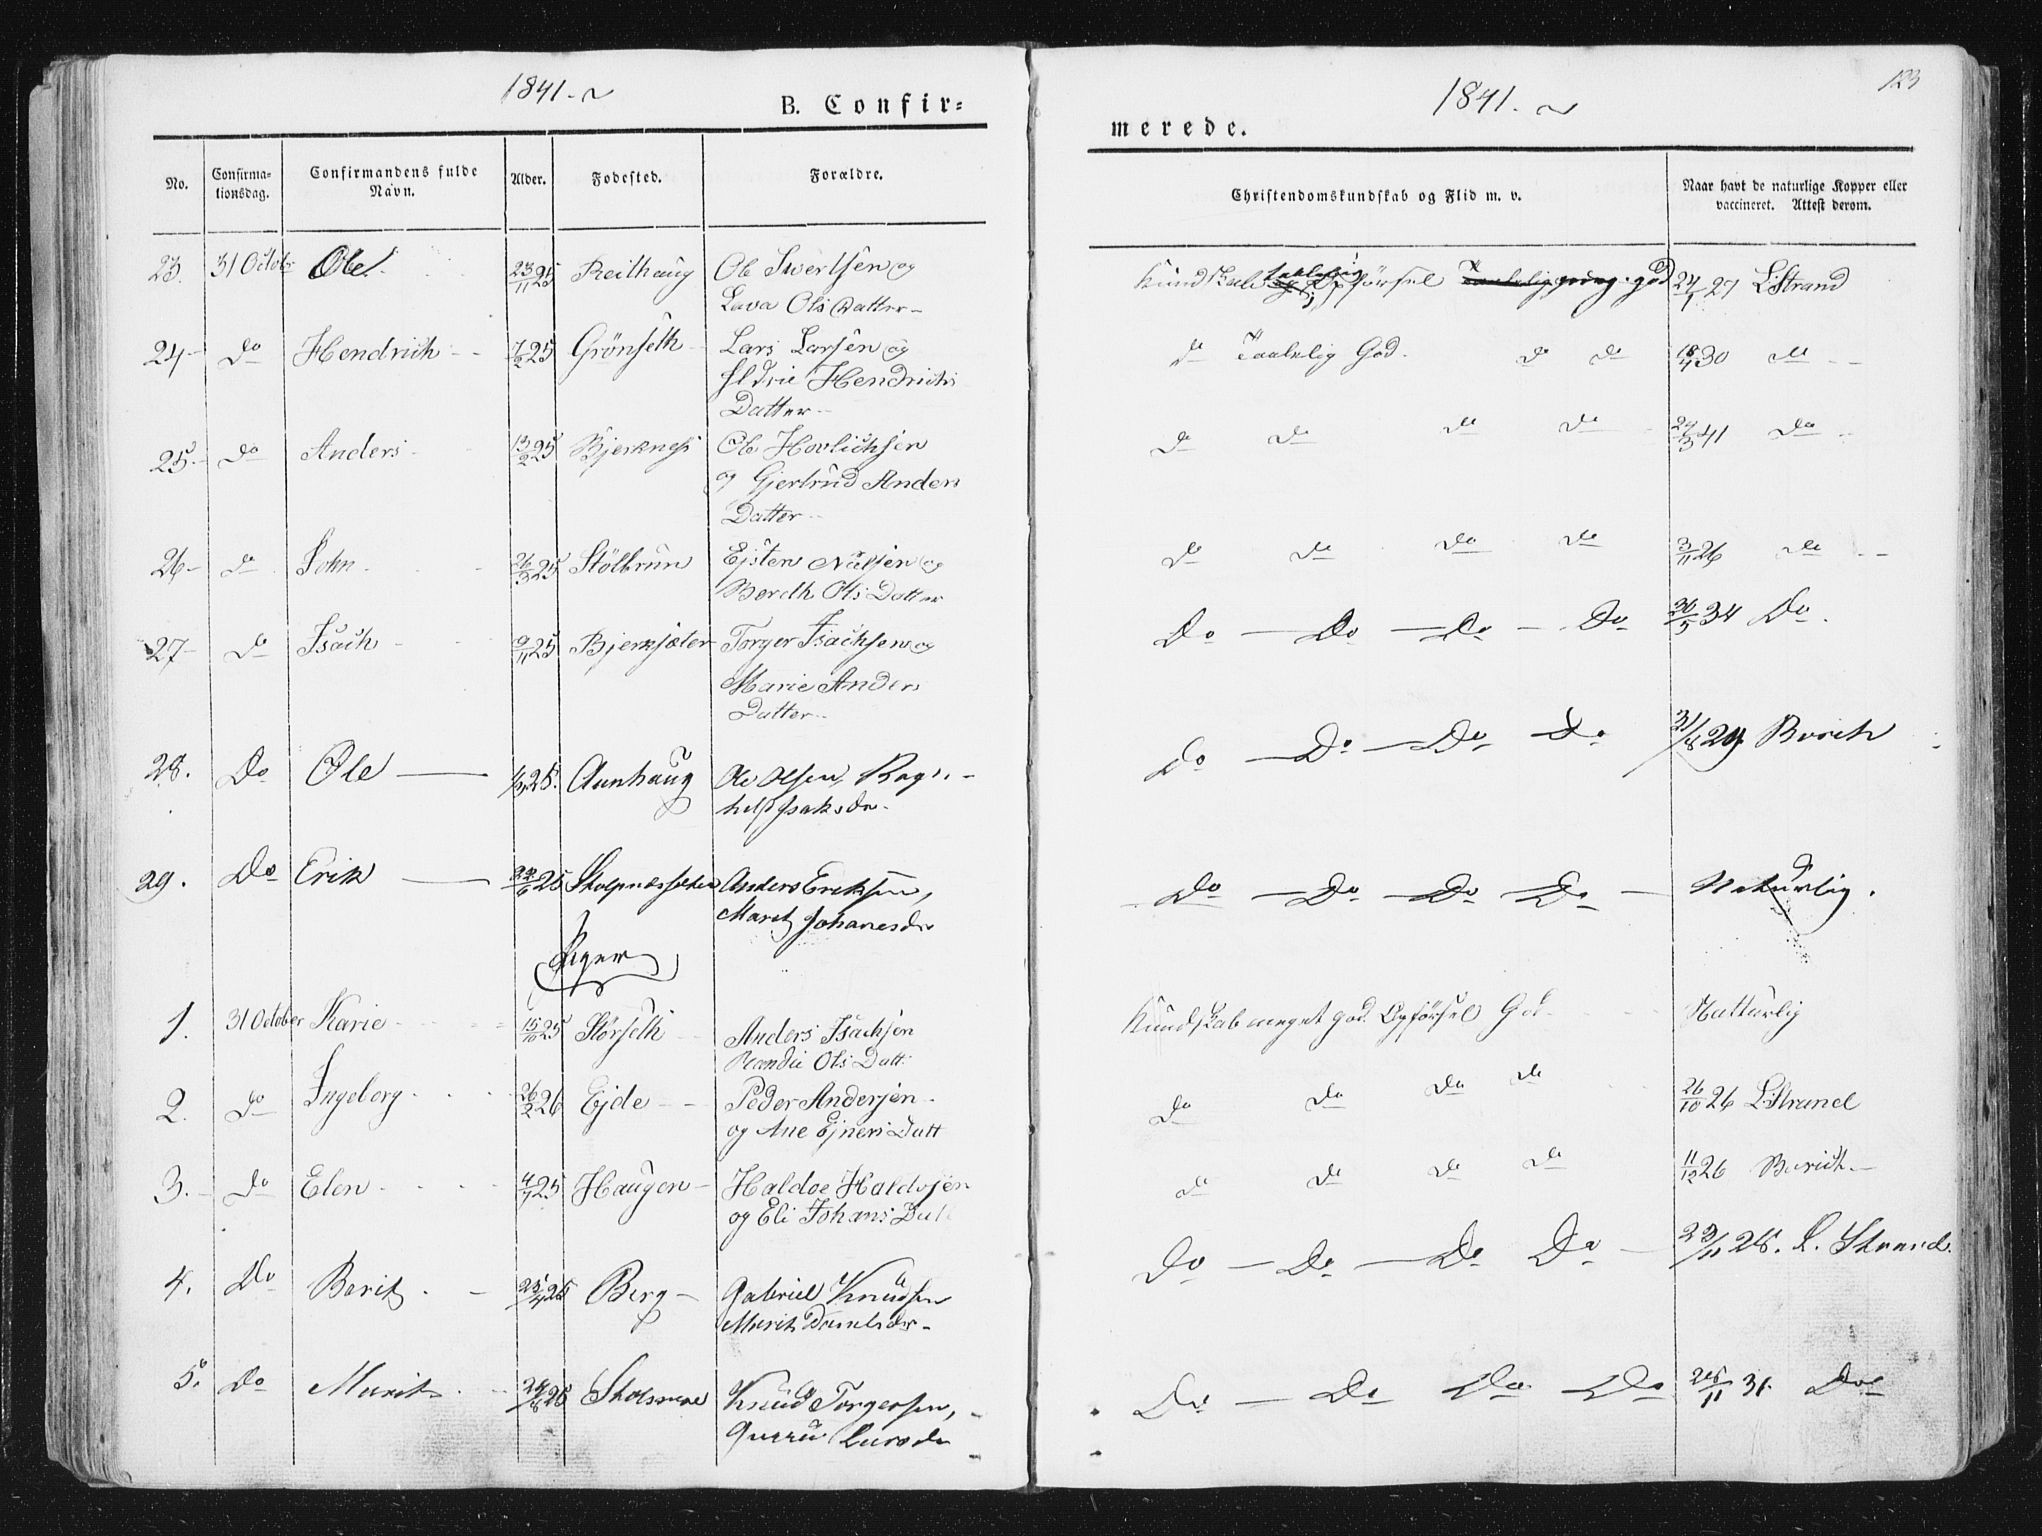 1841.
B. Confir=
No.
Confirma-
tionsdag.
Confirmandens fulde
Navn.
Alder.
Fødested.
Forældre.
23. 31 Octobr Ole 23/11 25 Reithaug Ole Sivertsen og
Lava Ols Datter
24 Do Hendrich 7/2 25 Grönseth Lars Larsen og
Hendrichs
Datter
25. Do Anders 13/2 25 Bjerknes Ole
og Gjertrud Anders
Datter
26 Do John 26/3 25 Stölbrun Ejsten Nilsen og
Bereth Ols Datter
27 Do Isach 9/11 25 Bjerksæter Torger Isachsen og
Marie Anders
Datter
28. Do Ole 25. Aunhaug Ole Olsen, Rag-
hild Isaksdr.
29. Do Erik 25 Anders Eriksen,
Marit Johanesdr
Piger
1. 31 October Karie 15/10 25 Störseth Anders Isachsen
Randie Ols Datt
2. Do Ingeborg 26/2 26 Ejde Peder Andersen
og Ane Ejners Datt
3. Do Elen 4/7 25 Haugen Haldoe Haldosen
og Eli Johans Datt
4. Do Berit 25/4 25 Berg Gabriel Knudsen
Marit
5. Do Marit 24/8 25 Knud Torgersen,
Guru Larsdr
1841.
123
merede.
Christendomskundskab og Flid m. v.
Naar havt de naturlige Kopper eller
vaccineret. Attest derom.
Kundskab taalelig Opförsel god 24/7 27 L. Strand
do Taalelig God. do do 18/7 30 do
do do do do 24/3 41 do
do do do do 3/11 26 do
Do Do Do Do 30/5 34 Do.
Do Do Do Do 31/8 29 Burch
Do Do Do Do Naturlig.
Kundskab meget god. Opförsel God Natturlig
do do do do 26/10 26 L. Strand
do do do do 11/12 26
Do Do Do Do 23/11 28. L. Strand.
Do Do Do Do 25/11 31. Do